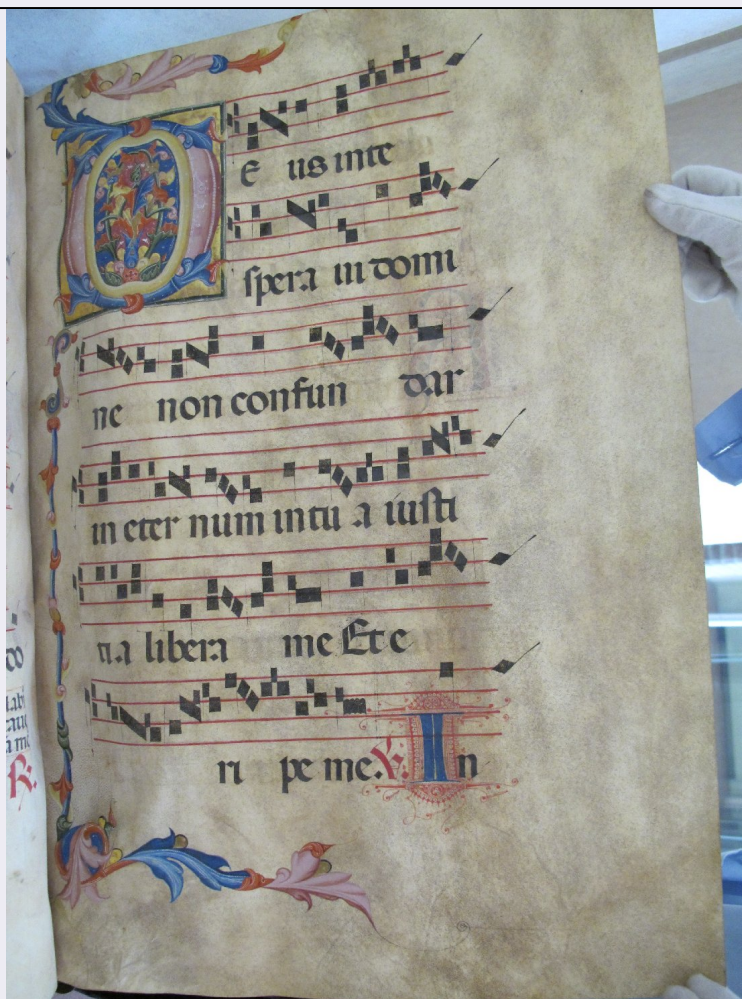 E us inte
spera in domi
ne non confun dar
in eter num in tu a iusti
ti a libera me Et e
ri pe me. ℣. In